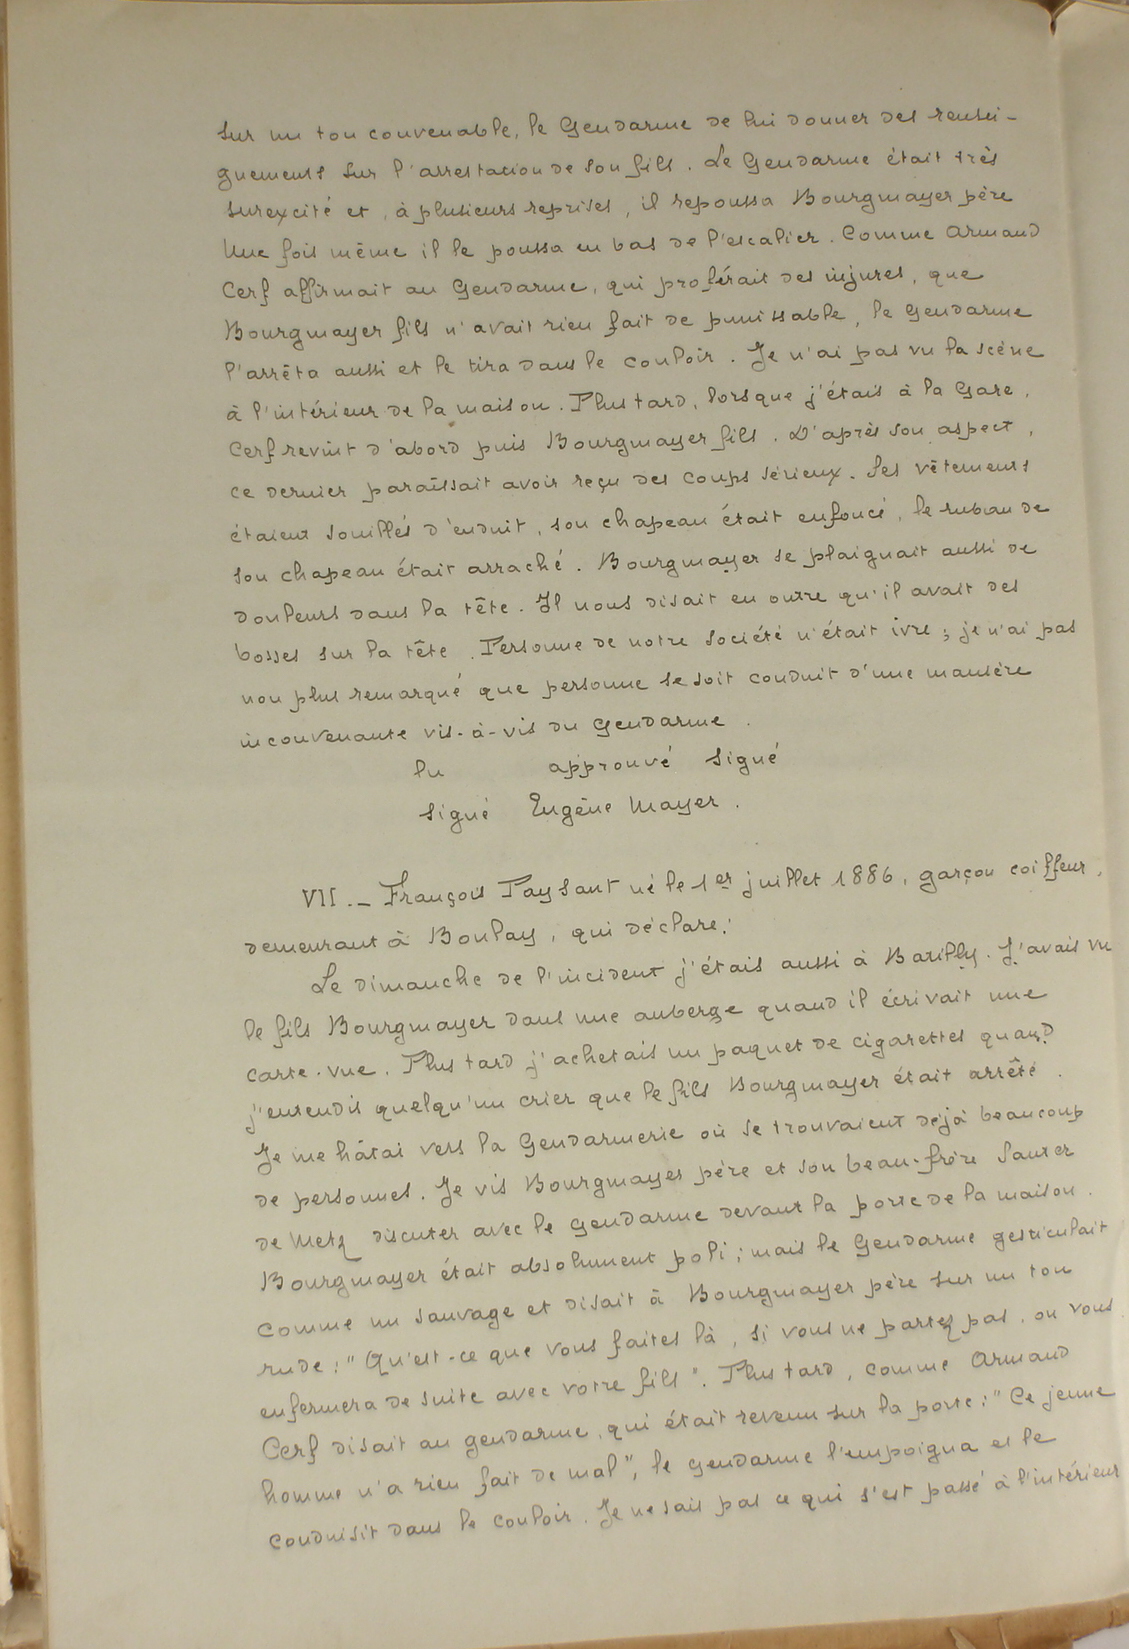 sur un ton convenable, le Gendarme de lui donner des rensei-
gnements sur l'arrestation de son fils. Le Gendarme était très
surexcité et, à plusieurs reprises, il repoussa Bourgmayer père
Une fois même il le poussa en bas de l'escalier. Comme Armand
Cerf affirmait au Gendarme, qui proférait des injures, que
Bourgmayer fils n'avait rien fait de punissable, le Gendarme
l'arrêta aussi et le tira dans le couloir. Je n'ai pas vu la scène
à l'intérieur de la maison. Plus tard, lorsque j'étais à la Gare,
Cerf revint d'abord puis Bourgmayer fils. D'après son aspect,
ce dernier paraîssait avoir reçu des coups sérieux. Ses vêtements
étaient souillés d'enduit, son chapeau était enfoncé, le ruban de
son chapeau était arraché. Bourgmayer se plaignait aussi de
douleurs dans la tête. Il nous disait en outre qu'il avait des
bosses sur la tête. Personne de notre société n'était ivre; je n'ai pas
non plus remarqué que personne se soit conduit d'une manière
inconvenante vis-à-vis du Gendarme.
lu approuvé signé
signé Eugène Mayer.
VII._ François Paysant né le 1er juillet 1886, garçon coiffeur,
demeurant à Boulay, qui déclare:
Le dimanche de l'incident j'étais aussi à Batilly. J'avais vu
le fils Bourgmayer dans une auberge quand il écrivait une
carte-vue. Plus tard j'achetais un paquet de cigarettes quand
j'entendis quelqu'un crier que le fils Bourgmayer était arrêté.
Je me hâtai vers la Gendarmerie où se trouvaient déjà beaucoup
de personnes. Je vis Bourgmayer père et son beau-frère Sauter
de Metz discuter avec le gendarme devant la porte de la maison.
Bourgmayer était absolument poli; mais le Gendarme gesticulait
comme un sauvage et disait à Bourgmayer père sur un ton
rude: "Qu'est-ce que vous faites là, si vous ne partez pas, on vous
enfermera de suite avec votre fils". Plus tard, comme Armand
Cerf disait au gendarme, qui était revenu sur la porte: "Ce jeune
homme n'a rien fait de mal", le gendarme l'empoigna et le
conduisit dans le couloir. Je ne sais pas ce qui s'est passé à l'intérieur